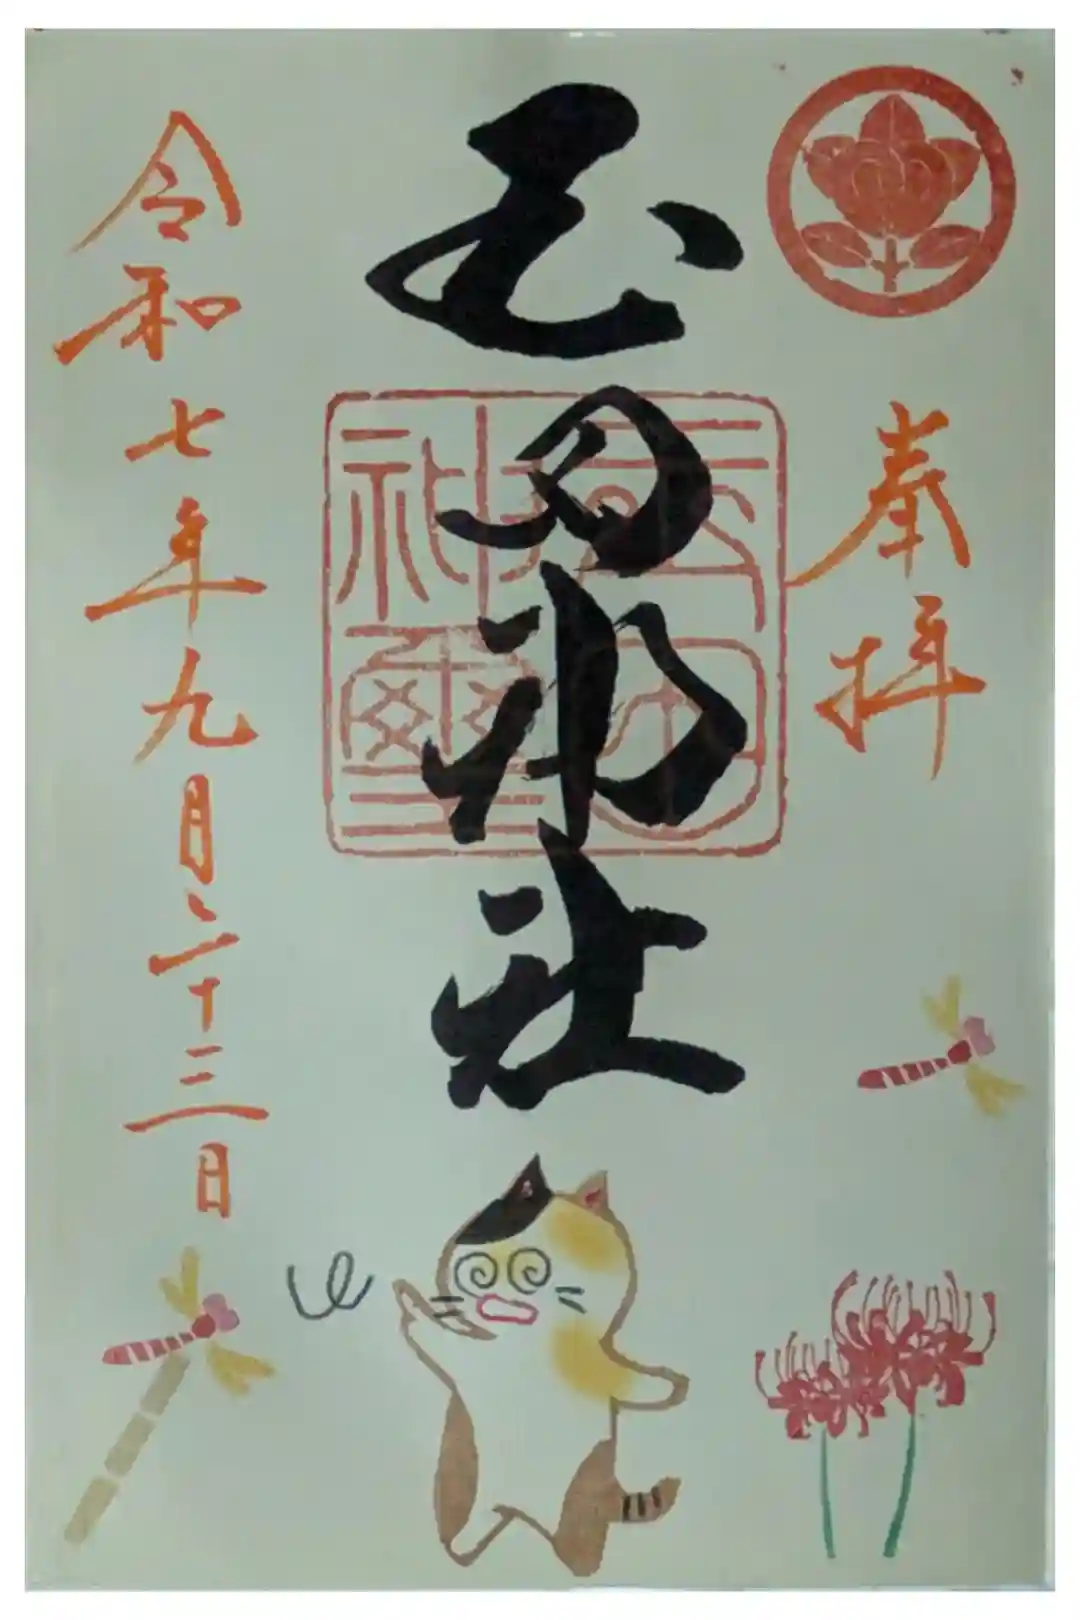 奉拝
玉田神社
玉田
神璽
令和七年九月二十三日